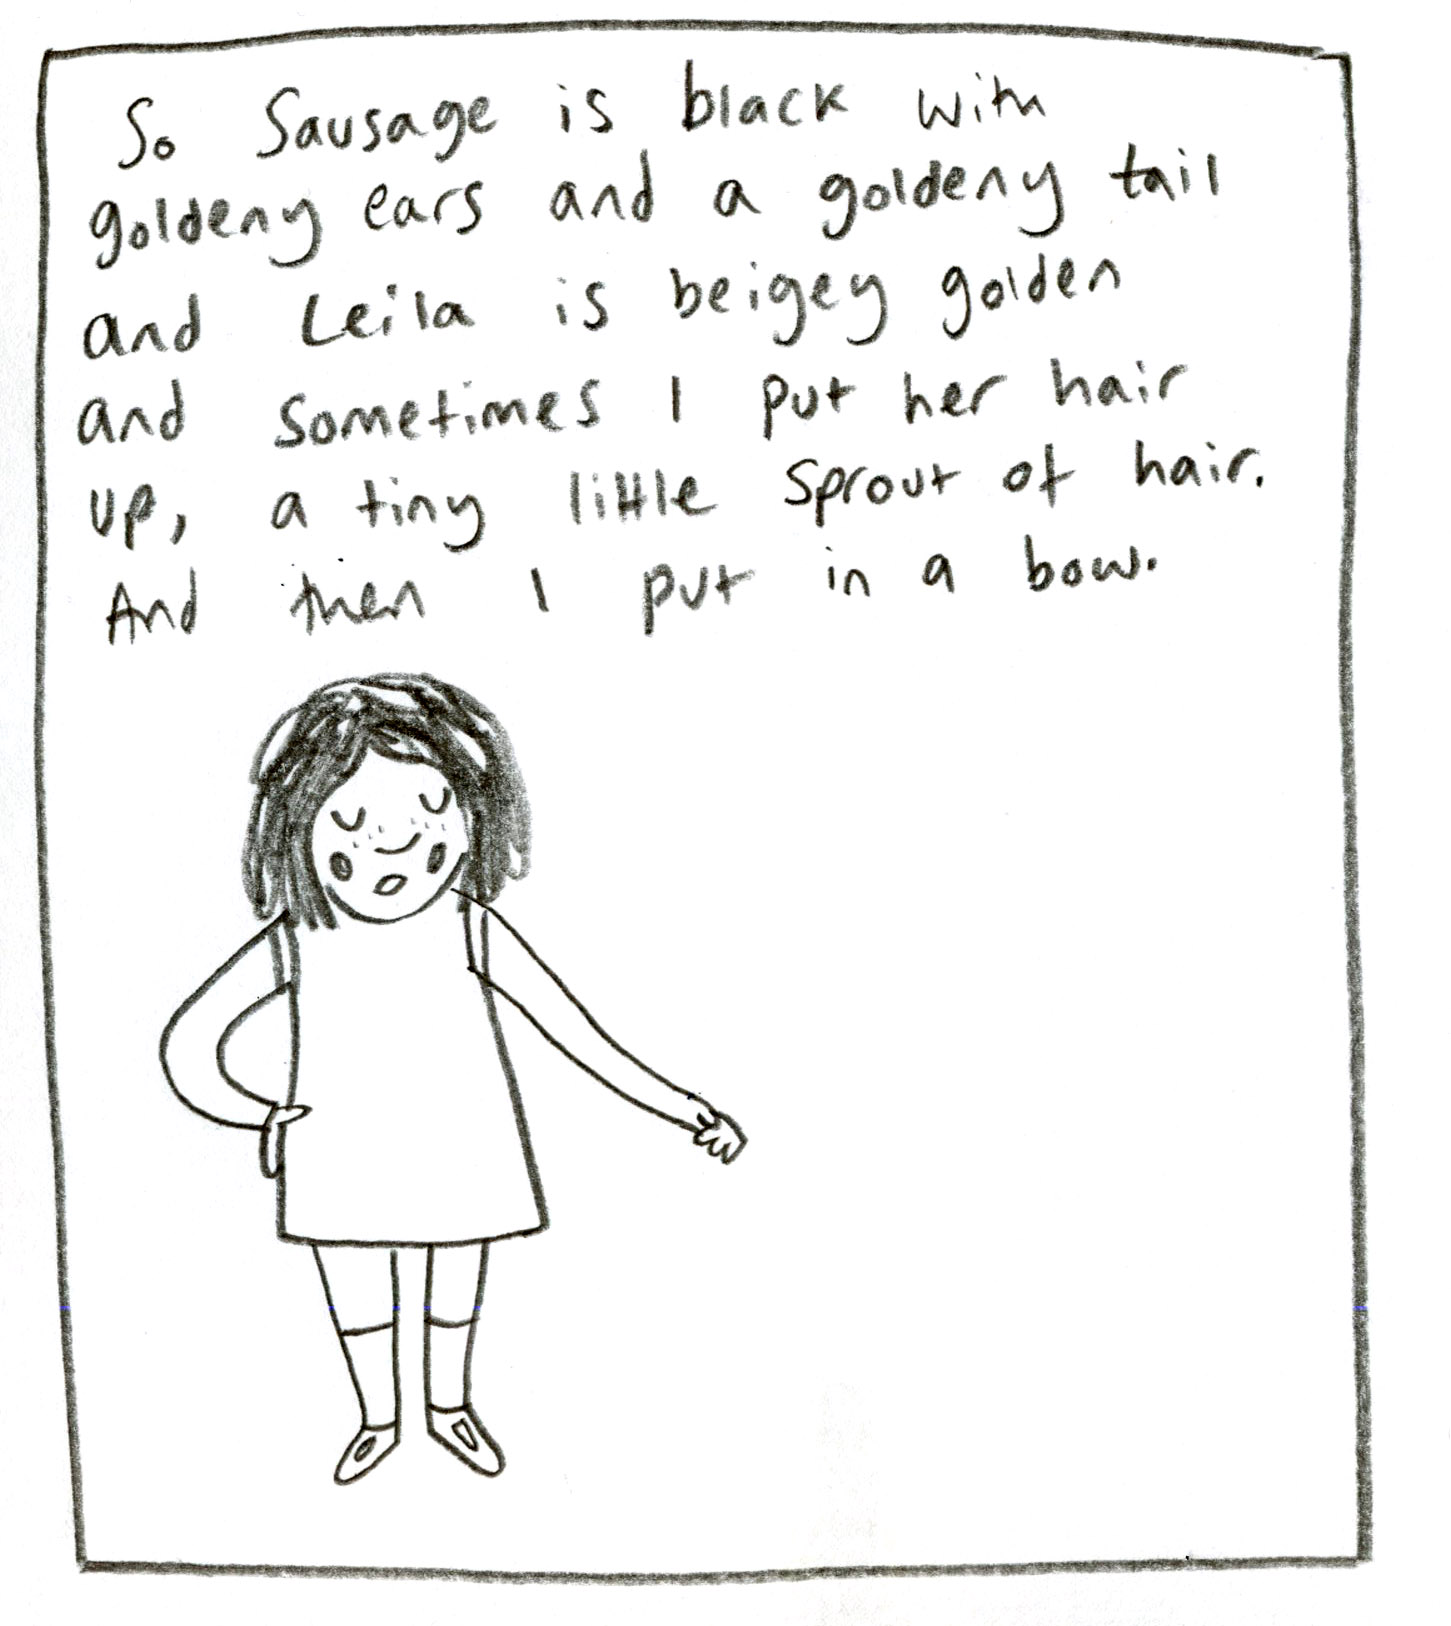 So Sausage is black with
goldeny ears and a goldeny tail
and Leila is beigey golden
and sometimes I put her hair
up, a tiny little sprout of hair.
And then I put in a bow.